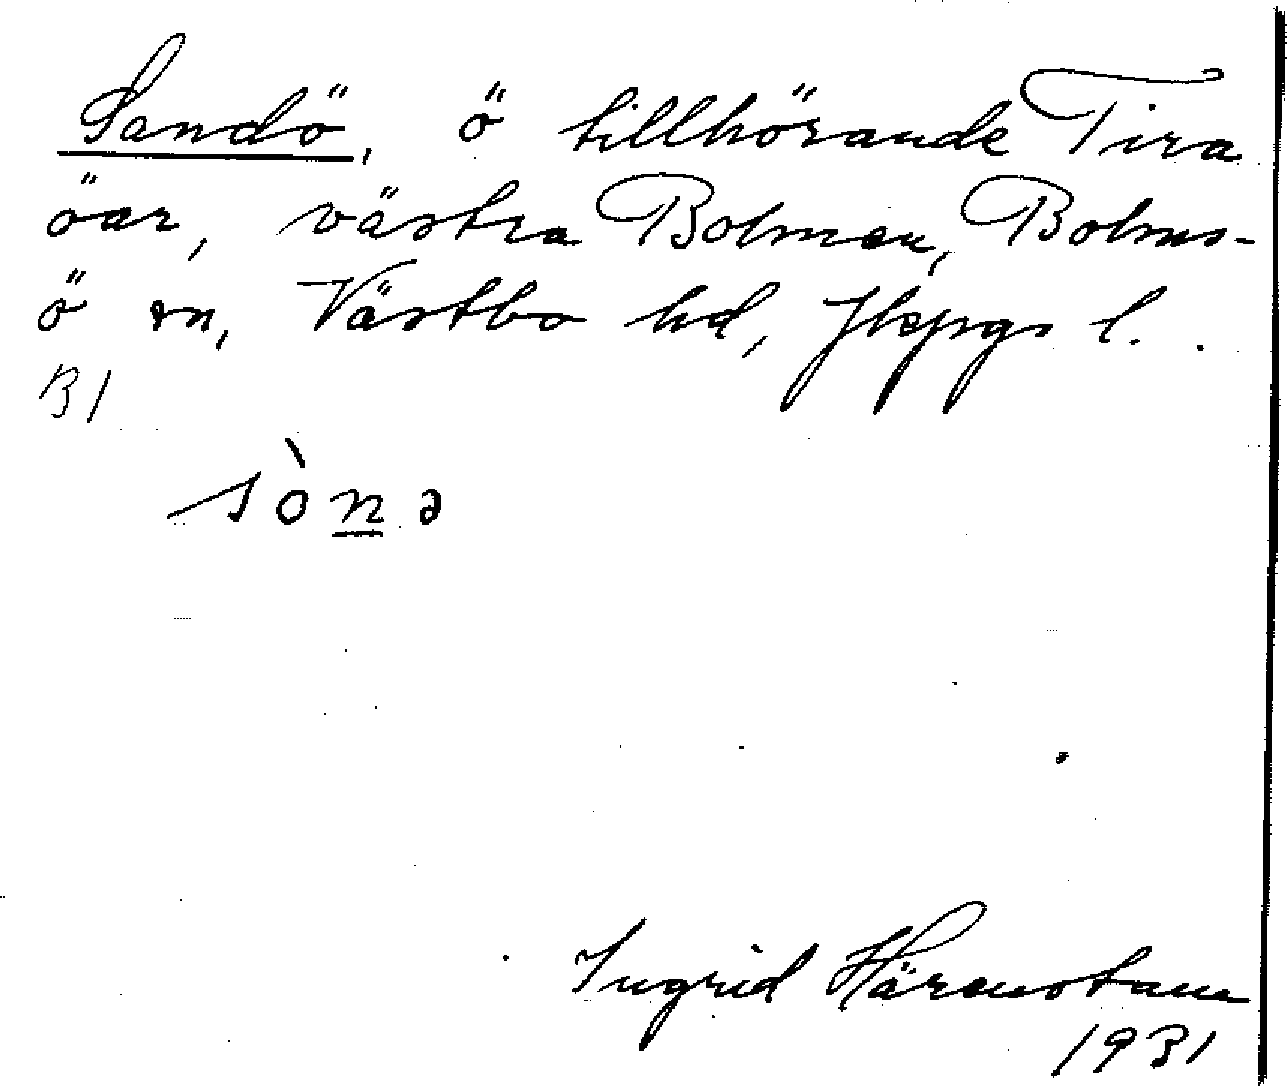 Sandö, ö tillhörande Tira
öar, västra Bolmen, Bolms-
ö sn, Västbo hd, Jkpgs l.
31
sònə
Ingrid Härenstam
1931